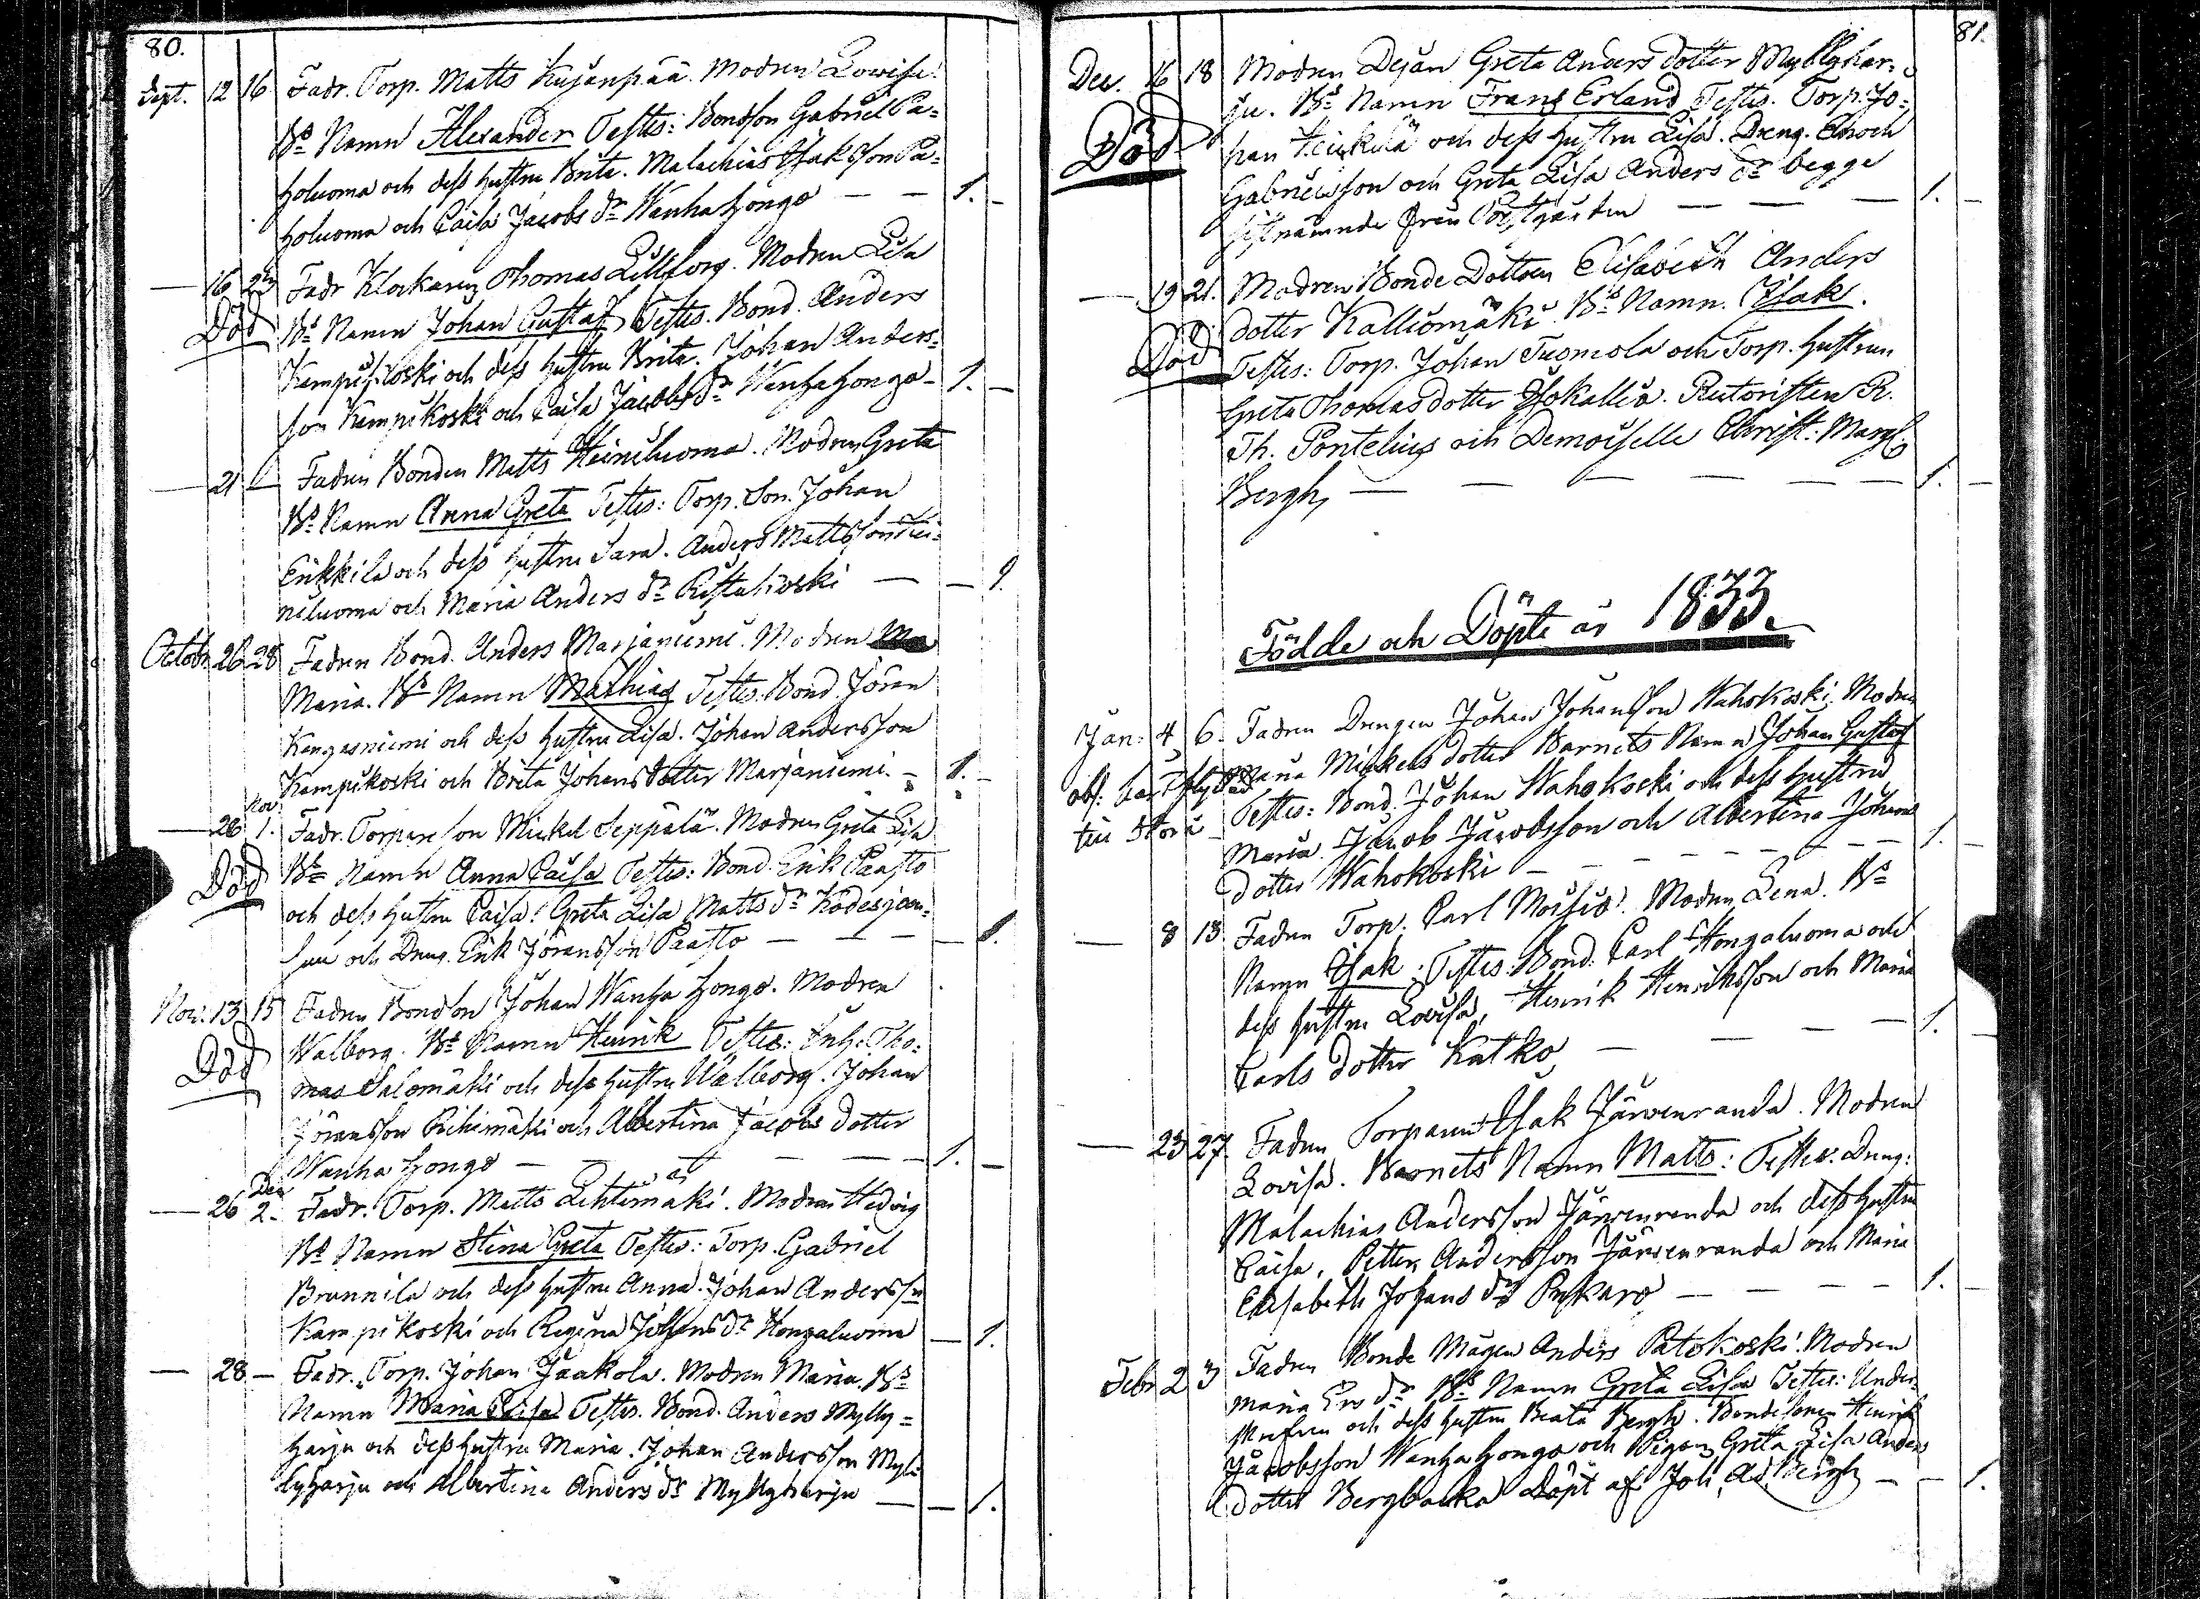 80.
Sept. 12 16 Fadr. Torp. Matts Kujanpää. Modren Lowisa.
Bs Namn Alexander Testes: Bondson Gabriel Pa-
holuoma och dess hustru Brita. Malachias Isaksson Pa-
holuoma och Caisa Jacobs dr Wanhahongo — — 1. –
— 16 23 Fadr Klockaren Thomas Lillfors. Modren Lisa
Död Bs Namn Johan Gustaf Testes. Bond. Anders
Kampikoski och dess hustru Brita. Johan Anders-
son Kampikoski och Caisa Jacobs dr Wanhahongo – 1. –
— 21 — Fadren Bonden Matts Heiniluoma. Modren Greta
Bs Namn Anna Greta Testes: Torp. Son. Johan
Erkkila och dess hustru Sara. Anders Mattsson Hei-
niluoma och Maria Anders dr Ristakoski — — 1.
Octobr. 26 28 Fadren Bond. Anders Marjaniemi. Modren
Maria. Bs Namn Mathias Testes. Bond. Jöran
Kangasniemi och dess hustru Lisa. Johan Andersson
Kampikoski och Brita Johans dotter Marjaniemi. – 1. –
Nov
— 28 1. Fadr. Torpare son Mickel Seppälä. Modren Greta Lisa
Död Bs Namn Anna Caisa Testes: Bond. Erik Paasto
och dess hustru Caisa. Greta Lisa Matts dr Kodesjoen-
suu och Dreng. Erik Jöransson Paasto — — — 1.
Nov. 13 15 Fadren Bondson Johan Wanhahongo. Modren
Död Walborg. Bs Namn Henrik Testes: Inh. Tho-
mas Salomäki och dess hustru Walborg. Johan
Jöransson Riihimäki och Albertina Jacobs dotter
Wanhahongo — — — — — 1. –
Dec
— 26 2. Fadr. Torp. Matts Lehtimäki. Modren Hedvig
Bs Namn Stina Greta Testes: Torp. Gabriel
Brunnila och dess hustru Anna. Johan Andersson
Kampikoski och Regina Johans dr Hongaluoma — 1.
— 28 — Fadr. Torp. Johan Jaakola. Modren Maria. Bs
Namn Maria Caisa Testes. Bond. Anders Mylly-
harju och dess hustru Maria. Johan Andersson Myl-
lyharju och Albertina Anders dr Myllyharju — — 1.
81.
Dec. 16 18 Modren Dejan Greta Anders dotter Myllyhar-
ju. Bs Namn Frans Erland Testes. Torp. Jo-
Död han Heikkilä och dess hustru Lisa. Dreng. Enoch
Gabrielsson och Greta Lisa Anders dr begge
sistnämnde från Postgården — — — 1. –
— 19 21. Modren Bonde Dottren Elisabeth Anders
dotter Kalliomäki. Bs Namn. Isak.
Död Testes: Torp. Johan Tuomola och Torp. hustrun
Greta Thomasdotter Isokallio. Auto­risten R.
Th. Pontelius och Demoiselle Christ: Marg:
Bergh, — — — — — — — 1. –
Födde och Döpte år 1833.
Jan: 4 6. Fadren Drengen Johan Johansson Wahokoski. Modren
Maria Mickels dotter Barnets Namn Johan Gustaf
obs: har flyttad Testes: Bond. Johan Wahokoski och dess hustru
till Storå Maria. Jacob Jacobsson och Albertina Johans
dotter Wahokoski — — — — — — 1. –
— 8 13. Fadren Torp. Carl Moisio. Modren Lena. Bs
Namn Isak. Testes: Bond. Carl Hongaluoma och
dess hustru Lovisa, Henrik Henriksson och Maria
Carls dotter Katko, — — — — 1. –
— 23 27. Fadren Torparen Isak Järwenranda. Modren
Lovisa. Barnets Namn Matts: Testes: Dreng:
Malachias Andersson Järwenranda och dess hustru
Caisa, Petter Andersson Järwenranda och Maria
Elisabeth Johans dr Puskaro — — — 1. –
Febr 2 3 Fadren Bonde Mågen Anders Patokoski. Modren
Maria Ers dr Bs Namn Greta Lisa Testes: Under-
och dess hustru Beata Bergh. Bondesonen Henrik
Jacobsson Wanhahongo och Pigan Greta Lisa Anders
dotter Bergbacka Döpt af Joh. Ad. Bergh — — 1.